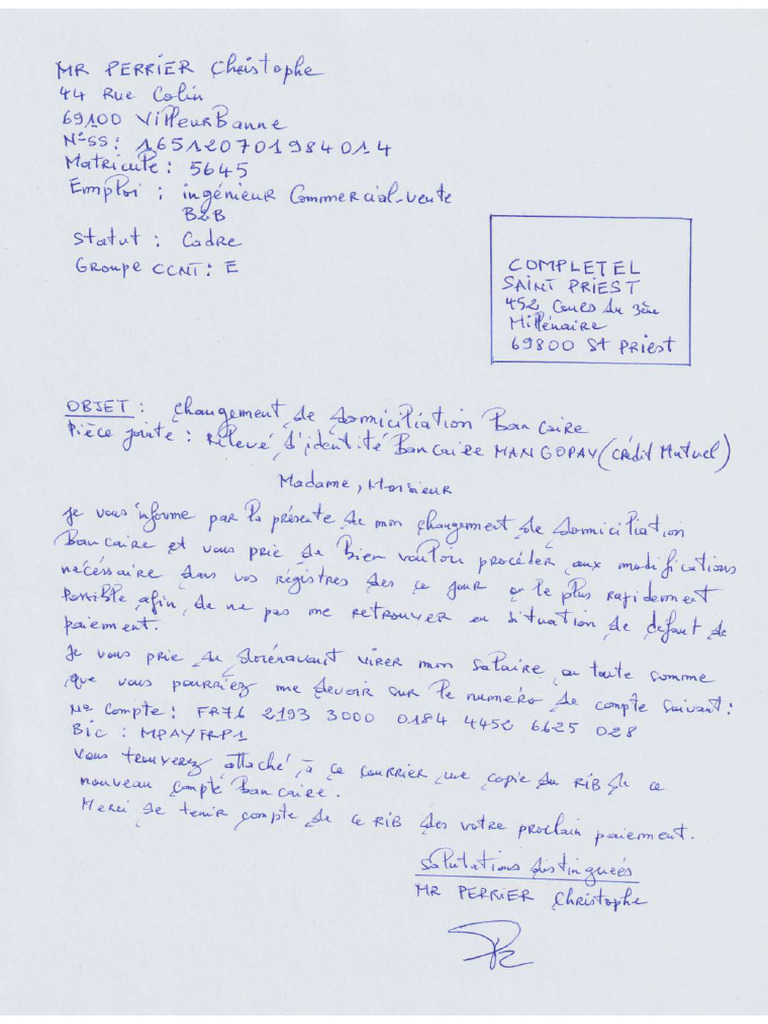 MR PERRIER Christophe
44 Rue Colin
69100 VilleurBanne
N°SS: 165120701984014
Matricule: 5645
Emploi : ingénieur Commercial-vente
B2B
Statut : Cadre
Groupe CCNT: E
COMPLETEL
SAINT PRIEST
452 Cours du 3ème
Millénaire
69800 St Priest
OBJET : changement de domiciliation Bancaire
Pièce jointe : Relevé d'identité Bancaire MANGOPAY (Crédit Mutuel)
Madame, Monsieur
Je vous informe par la présente de mon changement de domiciliation
Bancaire et vous prie de bien vouloir procéder aux modifications
nécéssaire dans vos régistres des ce jour ou le plus rapidement
possible afin de ne pas me retrouver en situation de defaut de
paiement.
Je vous prie du dorénavant virer mon salaire, ou toute somme
que vous pourriez me devoir sur le numéro de compte suivant:
No Compte : FR76 2193 3000 0184 4452 6625 028
Bic : MPAYFRP1
Vous trouverez attaché à ce courrier une copie du RIB de ce
nouveau compte Bancaire.
Merci de tenir compte de ce RIB des votre prochain paiement.
Salutations distinguées
MR PERRIER Christophe